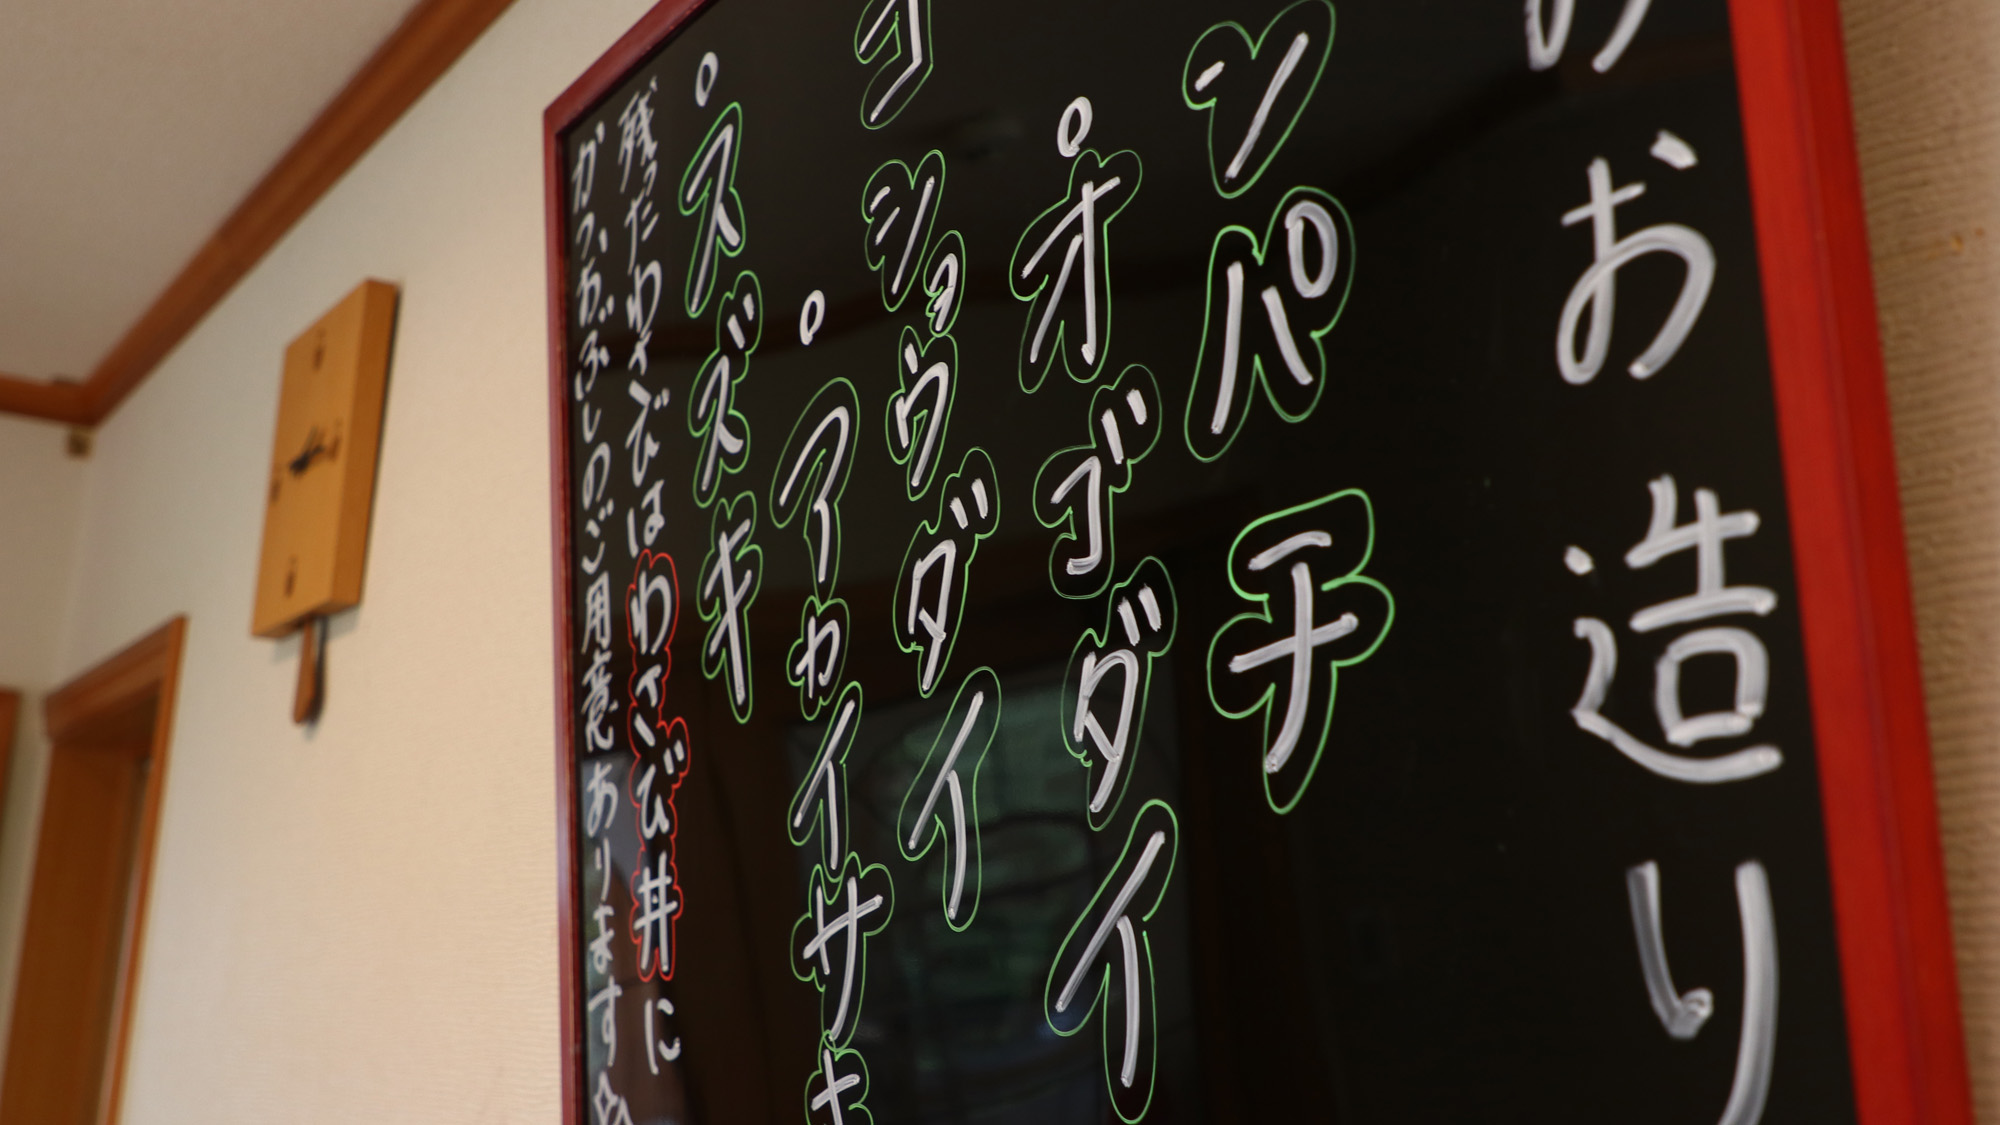 のお造り
ンパチ
オゴダイ
コショウダイ
アカイサキ
スズキ
残ったわさびはわさび丼に
かつおぶしのご用意あります☆